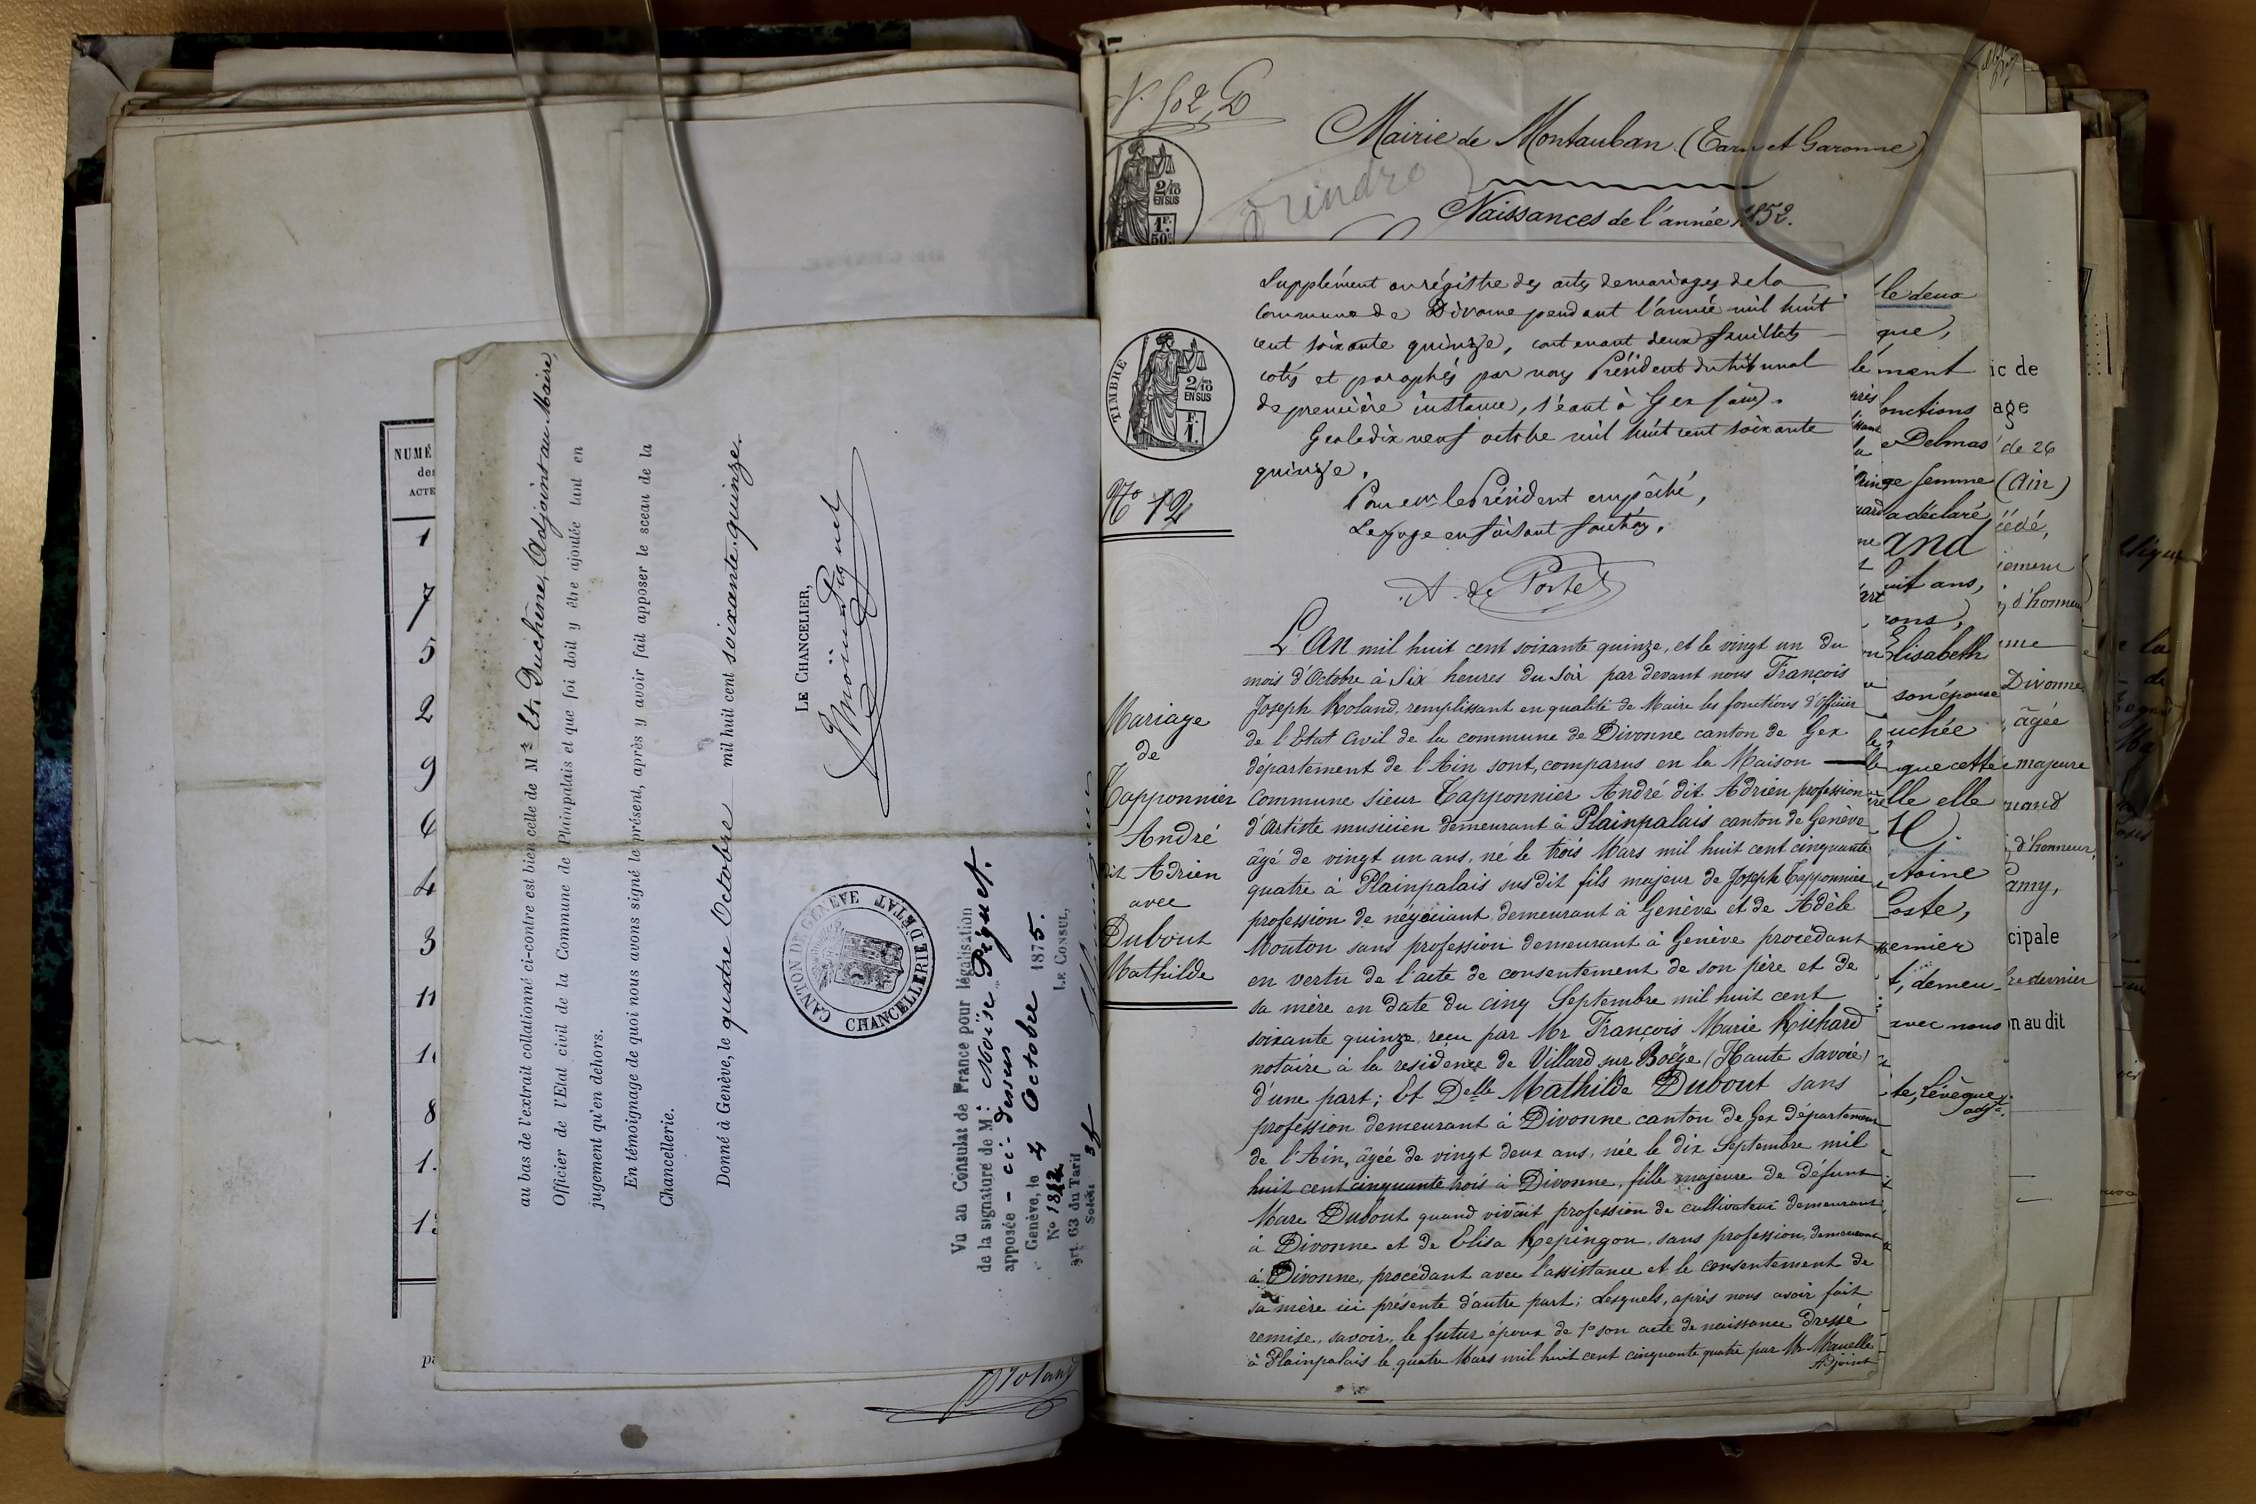 NUMÉ
des
ACTE
1
7
5
2
9
6
4
3
11
8
au bas de l'extrait collationné ci-contre est bien celle de Mr Et. Duchêne, Adjoint au Maire,
Officier de l'Etat civil de la Commune de Plainpalais et que foi doit y être ajoutée tant en
jugement qu'en dehors.
En témoignage de quoi nous avons signé le présent, après y avoir fait apposer le sceau de la
Chancellerie.
Donné à Genève, le quatre Octobre mil huit cent soixante-quinze.
LE CHANCELIER,
Moïse Piguet
CANTON DE GENÈVE
CHANCELLERIE D'ETAT
Vu au Consulat de France pour légalisation
de la signature de M. Moïse Piguet.
apposée - ci-dessus
Genève, le 4 Octobre 1875.
LE CONSUL,
art. 63 du Tarif
Roland
N° 502, D
Mairie de Montauban (Tarn et Garonne)
Naissances de l'année 1852.
2/10
EN SUS
1F.
50c
Supplément au régistre des actes de mariages de la
commune de Divonne pendant l'année mil huit
cent soixante quinze, contenant deux feuillets
cotés et paraphés par nous Président du tribunal
de première instance, séant à Gex (ain).
Gex le dix neuf octobre mil huit cent soixante
quinze.
Pour Mr le Président empêché,
Le juge en faisant fonctions,
A. de Portes
TIMBRE
2/10
EN SUS
F.
1.
N° 12
Mariage
de
Tapponnier
André
dit Adrien
avec
Dubout
Mathilde
L'An mil huit cent soixante quinze, et le vingt un du
mois d'Octobre à Six heures du Soir par devant nous François
Joseph Roland, remplissant en qualité de Maire les fonctions d'officier
de l'Etat Civil de la commune de Divonne canton de Gex
departement de l'Ain sont, comparus en la Maison
Commune sieur Tapponnier André dit Adrien profession
d'Artiste musicien demeurant à Plainpalais canton de Genève
âgé de vingt un ans, né le trois Mars mil huit cent cinquante
quatre à Plainpalais susdit fils majeur de Joseph Tapponnier
profession de négociant demeurant à Genève et de Adèle
Mouton sans profession demeurant à Genève procèdant
en vertu de l'acte de consentement de son père et de
sa mère en date du cinq Septembre mil huit cent
soixante quinze reçu par Mr François Marie Richard
notaire à la residence de Villard sur Boëge (Haute Savoie)
d'une part; Et Delle Mathilde Dubout sans
profession demeurant à Divonne canton de Gex département
de l'Ain, âgée de vingt deux ans, née le dix Septembre mil
huit cent cinquante trois à Divonne, fille majeure de défunt
Marc Dubout quand vivait profession de cultivateur demeurant
à Divonne et de Elisa Repingon, sans profession, demeurant
à Divonne, procédant avec l'assistance et le consentement de
sa mère ici présente d'autre part; Lesquels, après nous avoir fait
remise, savoir, le futur époux de 1° son acte de naissance dressé
à Plainpalais le quatre Mars mil huit cent cinquante quatre par Mr Manelle
Adjoint
le deux
que,
ment
onctions
Delmas
ge femme
a déclaré
and
huit ans,
Elisabeth
son épouse
uchée
que cette
lle elle
toine
Coste,
emier
t, demeu
avec nous
te, Lévêque,
adjt.
ic de
age
de 26
(Ain)
cédé,
d'honneur
Divonne
âgée
majeure
d'honneur,
amy,
cipale
ce dernier
n au dit